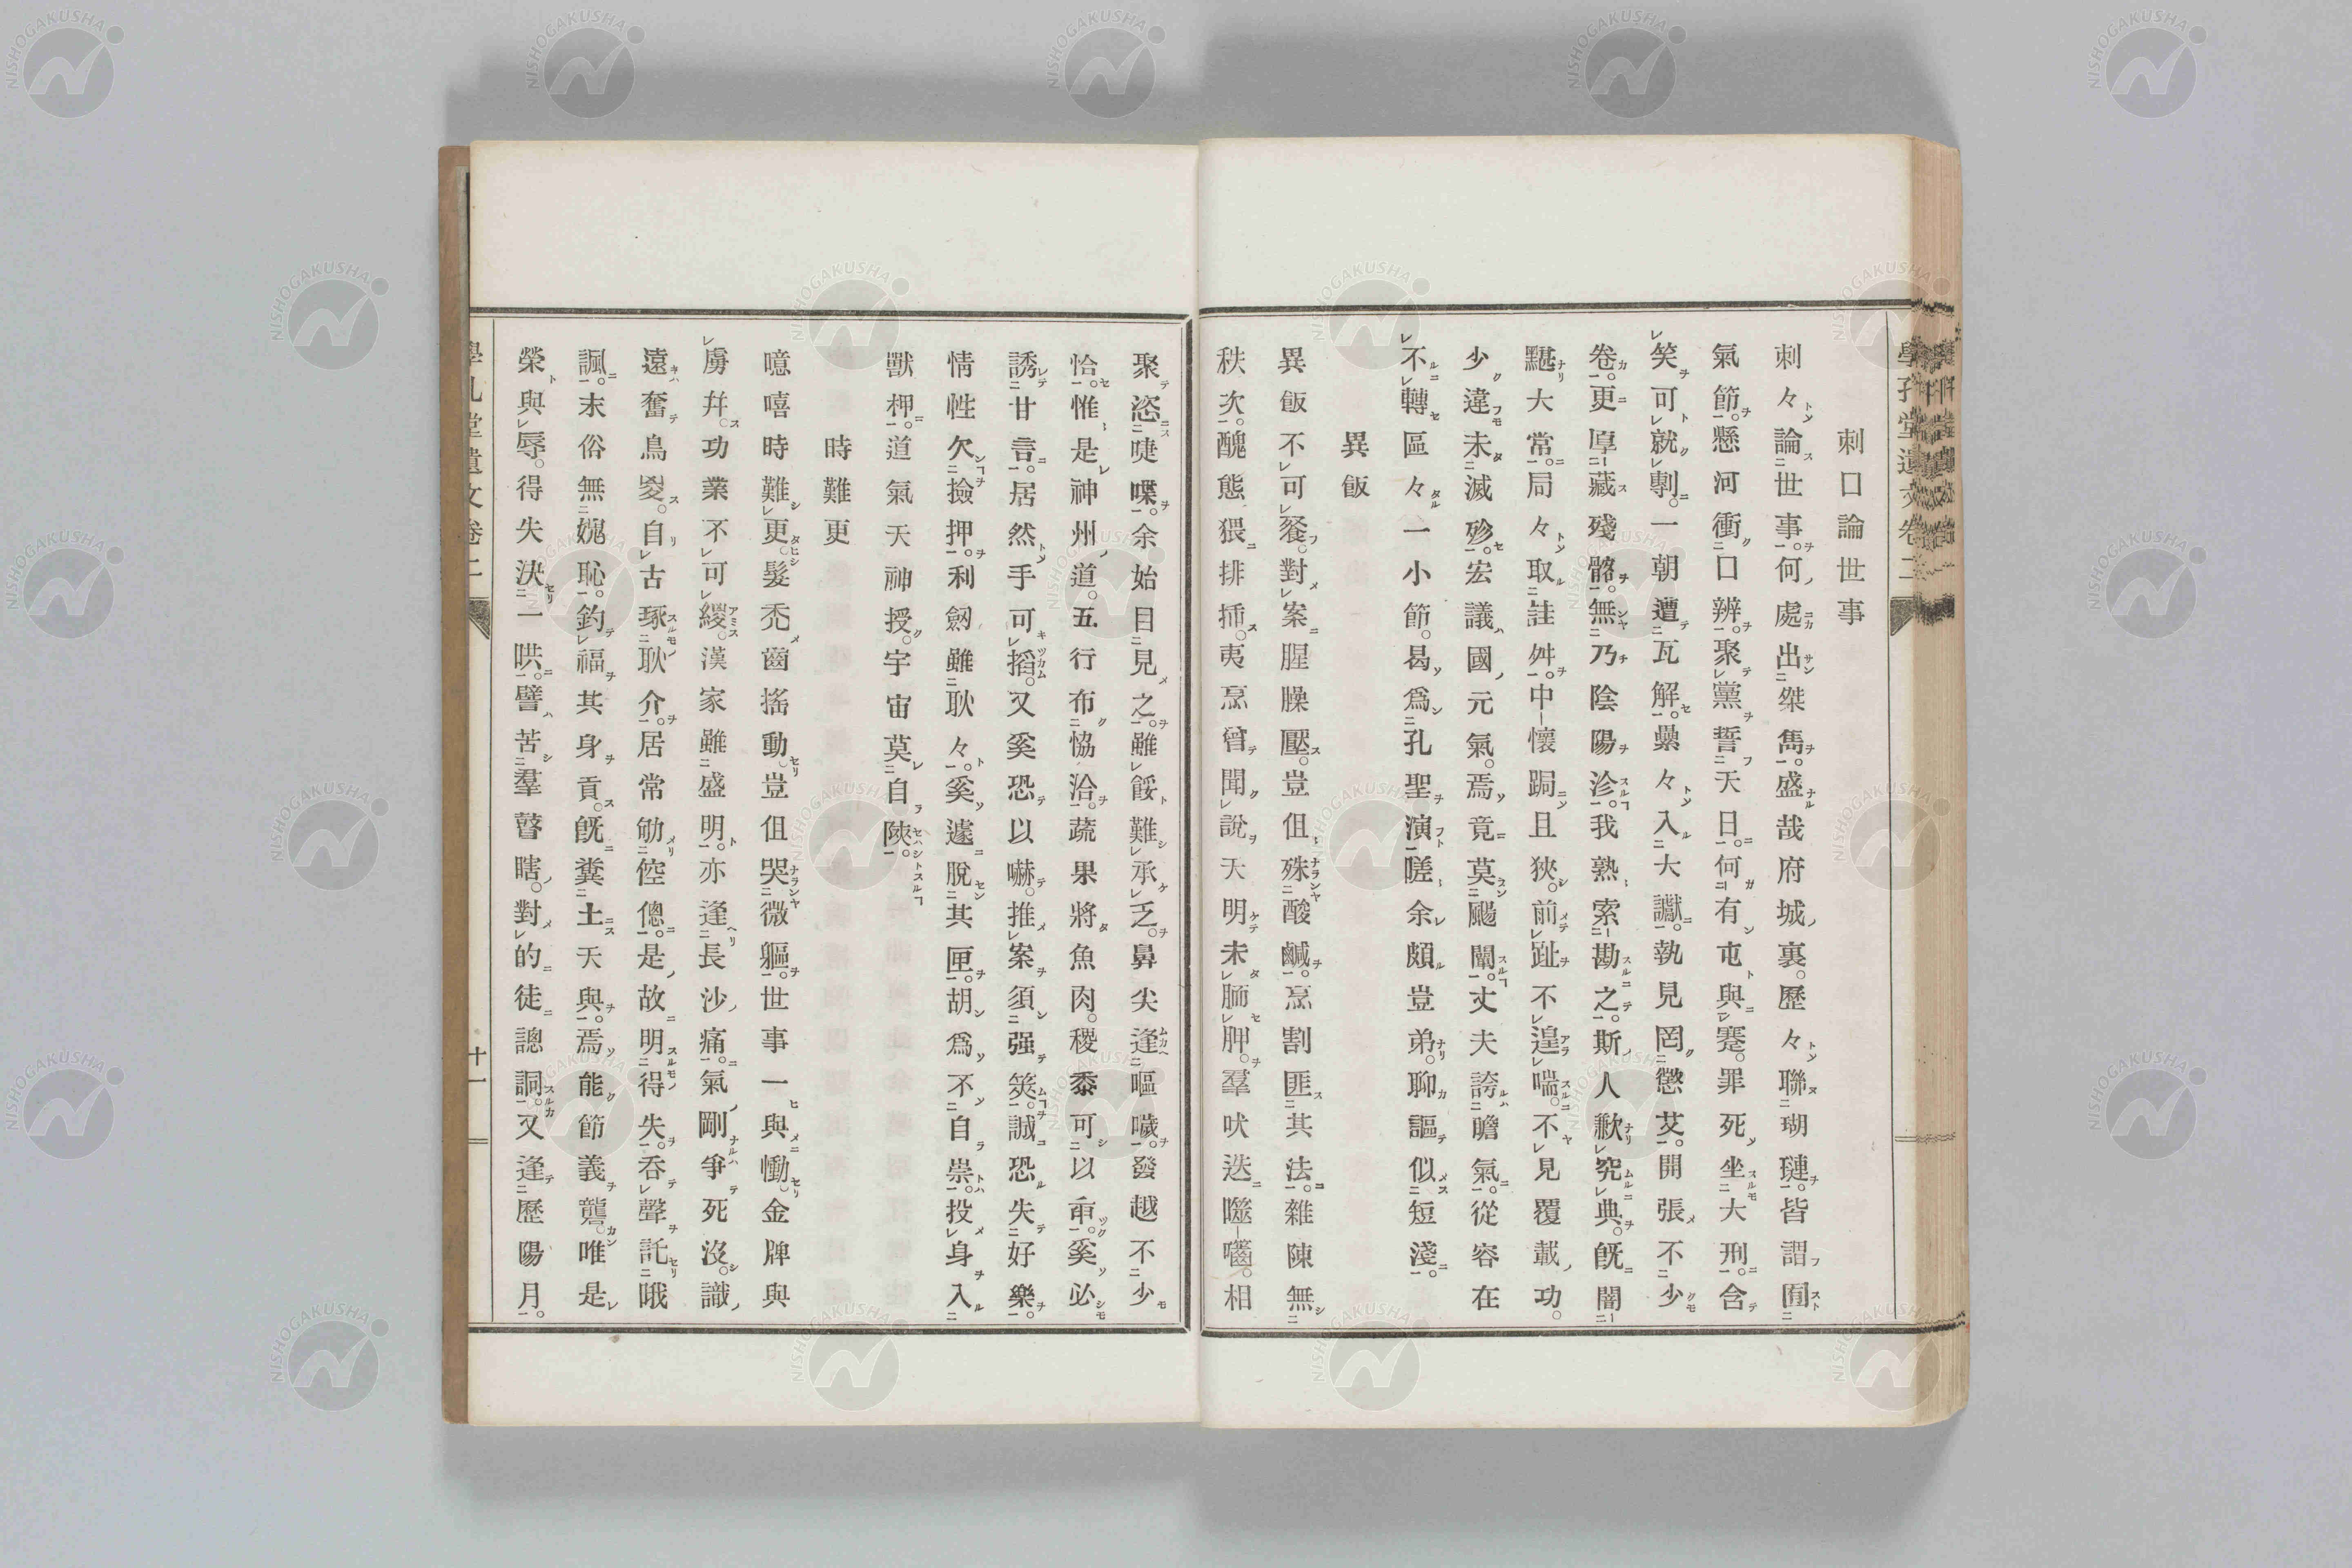 學孔堂遺文卷二
刺口論世事
刺々論世事。何處出桀雋。盛哉府城裏。歷々聯瑚璉。皆謂囿
氣節。懸河衝口辨。聚黨誓天日。何有屯與蹇。罪死坐大刑。含
笑可就剸。一朝遭瓦解。纍々入大讞。執見罔懲艾。開張不少
卷。更厚藏殘骼。無乃陰陽沴。我熟索勘之。斯人歉究典。既闇
黮大常。局々取註舛。中懷跼且狹。前趾不遑喘。不見覆載功。
少違未滅殄。宏議國元氣。焉竟莫颺闡。丈夫誇瞻氣。從容在
不轉區々一小節。曷爲孔聖演。嗟余頗豈弟。聊謳似短淺。
異飯
異飯不可餮。對案腥臊壓。豈但殊酸鹹。烹割匪其法。雜陳無
秩次。醜態猥排揷。夷烹曾聞說天明未胹胛。羣吠迭噬嚙。相
聚恣啑喋。余始目見之。雖餒難承乏。鼻尖逢嘔噦。發越不少
恰。惟是神州道。五行布恊洽。蔬果將魚肉。稷黍可以臿。奚必
誘甘言。居然手可搯。又奚恐以嚇。推案須强筴。誠恐失好樂。
情性欠撿押。利劒雖耿々。奚遽脫其匣。胡爲不自祟。投身入
獸柙。道氣天神授。宇宙莫自陜。
時難更
噫嘻時難更。髮禿齒搖動。豈但哭微軀。世事一與慟。金牌與
虜幷。功業不可緩。漢家雖盛明。亦逢長沙痛。氣剛爭死沒。識
遠奮鳥嵏。自古琢耿介。居常劬倥傯。是故明得失。吞聲託哦
諷。末俗無媿恥。釣福其身貢。旣糞土天與。焉能節義龔。唯是
榮與辱。得失決一哄。譬苦羣瞽瞎。對的徒謥詷。又逢歷陽月。
學孔堂遺文卷二
十一